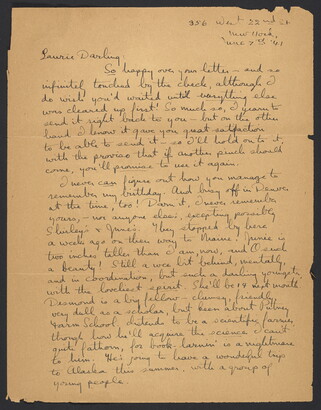 356 West 22nd St.
New York,
June 7th '41
Laurie Darling,
So happy over your letter - and so
infinitely touched by the check, although I
do wish you'd waited until everything else
was cleared up first! So much so, I yearn to
send it right back to you - but on the other
hand I know it gave you great satisfaction
to be able to send it - so I'll hold on to it,
with the proviso that if another pinch should
come, you'll promise to use it again.
I never can figure out how you manage to
remember my birthday. And busy off in Denver
at the time, too! Darn it, I never remember
yours, - nor anyone else's, excepting possibly
Shirley's & June's. They stopped by here
a week ago on their way to Maine! June is
two inches taller than I am now, and O such
a beauty! Still a wee bit behind, mentally,
and in coordination, but such a darling youngster,
with the loveliest spirit. She'll be 14 next month
Desmond is a big fellow - clumsy, friendly,
very dull as a scholar, but keen about Putney
Farm School, intends to be a scientific farmer,
though how he'll acquire the science I can't
quite fathom, for book-larnin' is a nightmare
to him. He's going to have a wonderful trip
to Alaska this summer, with a group of
young people.